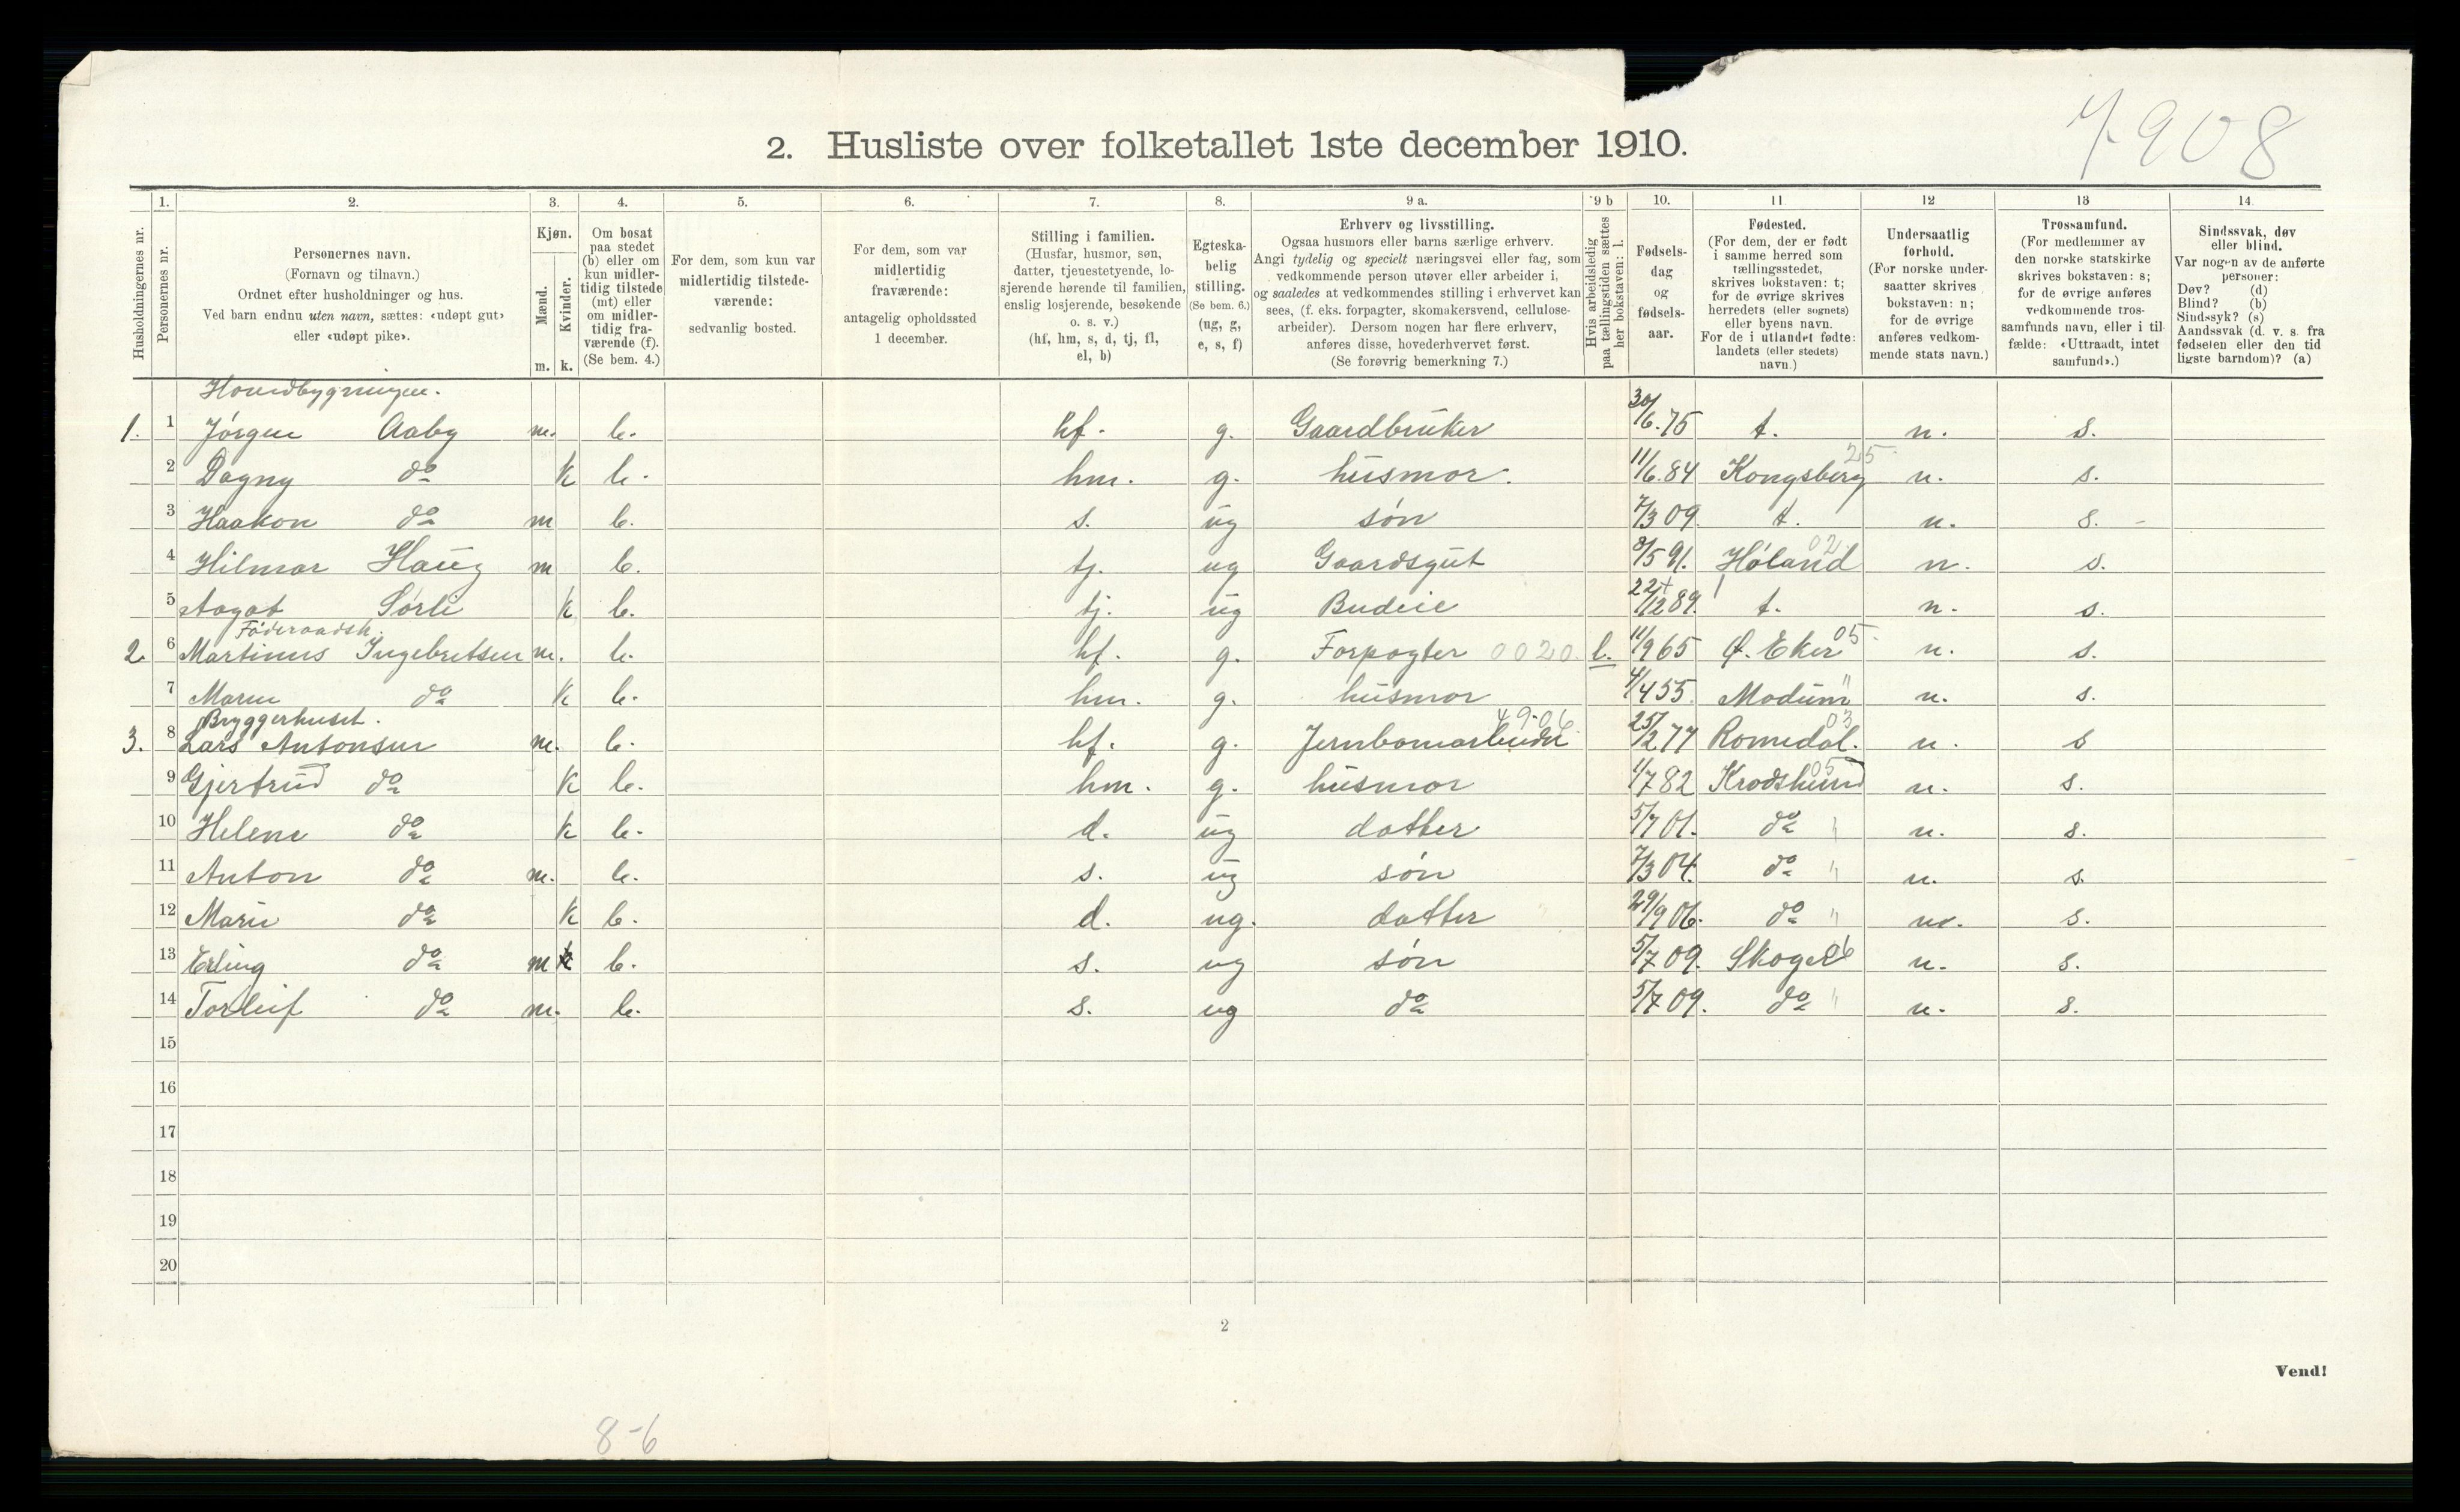 7908
2. Husliste over folketallet 1ste december 1910.
1. 2. 3. 4. 5. 6. 7. 8. 9 a. 9 b 10. 11 12 13 14.
Husholdningernes nr.
Personernes nr.
Personernes navn.
(Fornavn og tilnavn.)
Ordnet efter husholdninger og hus.
Ved barn endnu uten navn, sættes: «udøpt gut»
eller «udøpt pike».
Kjøn.
Mænd.
Kvinder.
m. k.
Om bosat
paa stedet
(b) eller om
kun midler-
tidig tilstede
(mt) eller
om midler-
tidig fra-
værende (f).
(Se bem. 4.)
For dem, som kun var
midlertidig tilstede-
værende:
sedvanlig bosted.
For dem, som var
midlertidig
fraværende:
antagelig opholdssted
1 december.
Stilling i familien.
(Husfar, husmor, søn,
datter, tjenestetyende, lo-
sjerende hørende til familien,
enslig losjerende, besøkende
o. s. v.)
(hf, hm, s, d, tj, fl,
el, b)
Egteska-
belig
stilling.
(Se bem. 6.)
(ug, g,
e, s, f)
Erhverv og livsstilling.
Ogsaa husmors eller barns særlige erhverv.
Angi tydelig og specielt næringsvei eller fag, som
vedkommende person utøver eller arbeider i,
og saaledes at vedkommendes stilling i erhvervet kan
sees, (f. eks. forpagter, skomakersvend, cellulose-
arbeider). Dersom nogen har flere erhverv,
anføres disse, hovederhvervet først.
(Se forøvrig bemerkning 7.)
Hvis arbeidsledig
paa tællingstiden sættes
her bokstaven: l.
Fødsels-
dag
og
fødsels-
aar.
Fødested.
(For dem, der er født
i samme herred som
tællingsstedet,
skrives bokstaven: t;
for de øvrige skrives
herredets (eller sognets)
eller byens navn.
For de i utlandet fødte:
landets (eller stedets)
navn.)
Undersaatlig
forhold.
(For norske under-
saatter skrives
bokstaven: n;
for de øvrige
anføres vedkom-
mende stats navn.)
Trossamfund.
(For medlemmer av
den norske statskirke
skrives bokstaven: s;
for de øvrige anføres
vedkommende tros-
samfunds navn, eller i til-
fælde: «Uttraadt, intet
samfund».)
Sindssvak, døv
eller blind.
Var nogen av de anførte
personer:
Døv? (d)
Blind? (b)
Sindssyk? (s)
Aandssvak (d. v. s. fra
fødselen eller den tid-
ligste barndom)? (a)
Hovedbygningen.
1. 1 Jørgen Aaby m. b. hf. g. Gaardbruker 30/6.75 t. n. s.
2 Dagny do k b. hm. g. husmor. 11/6.84 Kongsberg 25 n. s.
3 Haakon do m b. s. ug søn 7/3 09. t. n. s.
4 Hilmar Haug m b. tj. ug Gaardsgut 8/5 91. Høland 02 n. s.
5 Aagot Sørli k b. tj. ug Budeie 22/12 89. t. n. s.
Føderaadsh.
2 6 Martinus Ingebretsen m. b. hf. g. Forpagter 0020 l. 11/9 65 Ø. Eker 05 n. s.
7 Maren do k b. hm. g. husmor 4/4 55. Modum " n. s.
Bryggerhuset.
3. 8 Lars Antonsen m. b. hf. g. Jernbanearbeider 49.06 25/2 77 Romedal. 03 n. s
9 Gjertrud do k b. hm. g. husmor 1/7 82 Krødsherred 05 n. s.
10 Helene do k b. d. ug datter 5/7 01. do " n. s.
11 Anton do m. b. s. ug søn 7/3 04. do " n. s.
12 Marie do k b. d. ug. datter 29/9 06. do " n. s.
13 Erling do m k b. s. ug søn 5/7 09. Skoger 06 n. s.
14 Torleif do m. b. s. ug do 5/7 09. do " n. s.
15
16
17
18
19
20
2
Vend!
8-6